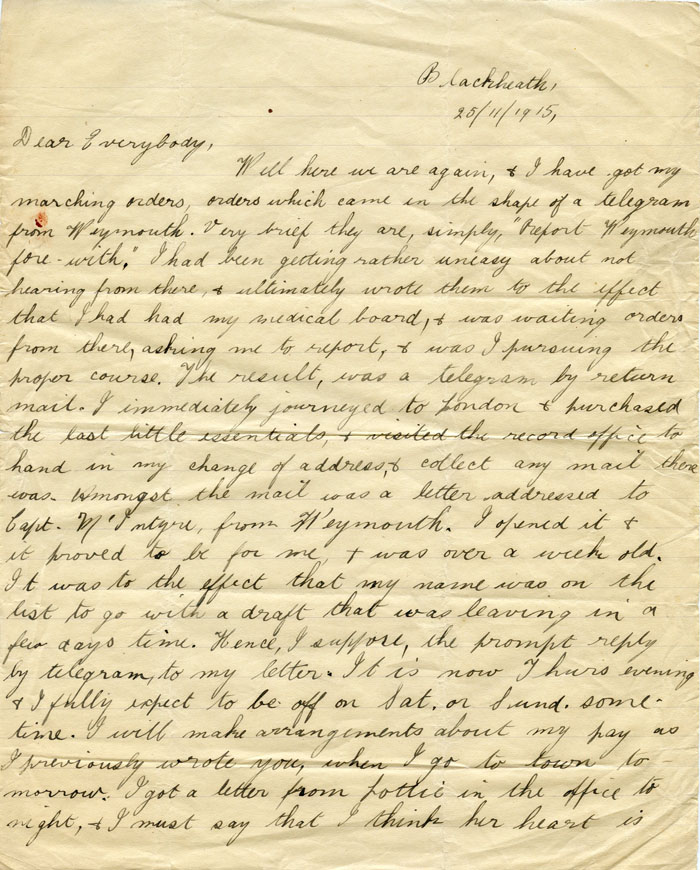 Blackheath,
25/11/1915,
Dear Everybody,
Well here we are again, & I have got my
marching orders, orders which came in the shape of a telegram
from Weymouth. Very brief they are, simply, "Report Weymouth
fore-with." I had been getting rather uneasy about not
hearing from there, & ultimately wrote them to the effect
that I had had my medical board, & was waiting orders
from there, asking me to report, & was I pursuing the
proper course. The result, was a telegram by return
mail. I immediately journeyed to London & purchased
the last little essentials, & visited the record office to
hand in my change of address, & collect any mail there
was. Amongst the mail was a letter addressed to
Capt. M'Intyre, from Weymouth. I opened it &
it proved to be for me, & was over a week old.
It was to the effect that my name was on the
list to go with a draft that was leaving in a
few days time. Hence, I suppose, the prompt reply
by telegram, to my letter. It is now Thurs evening
& I fully expect to be off on Sat. or Sund. some-
time. I will make arrangements about my pay as
I previously wrote you, when I go to town to-
morrow. I got a letter from Lottie in the office to
night, & I must say that I think her heart is